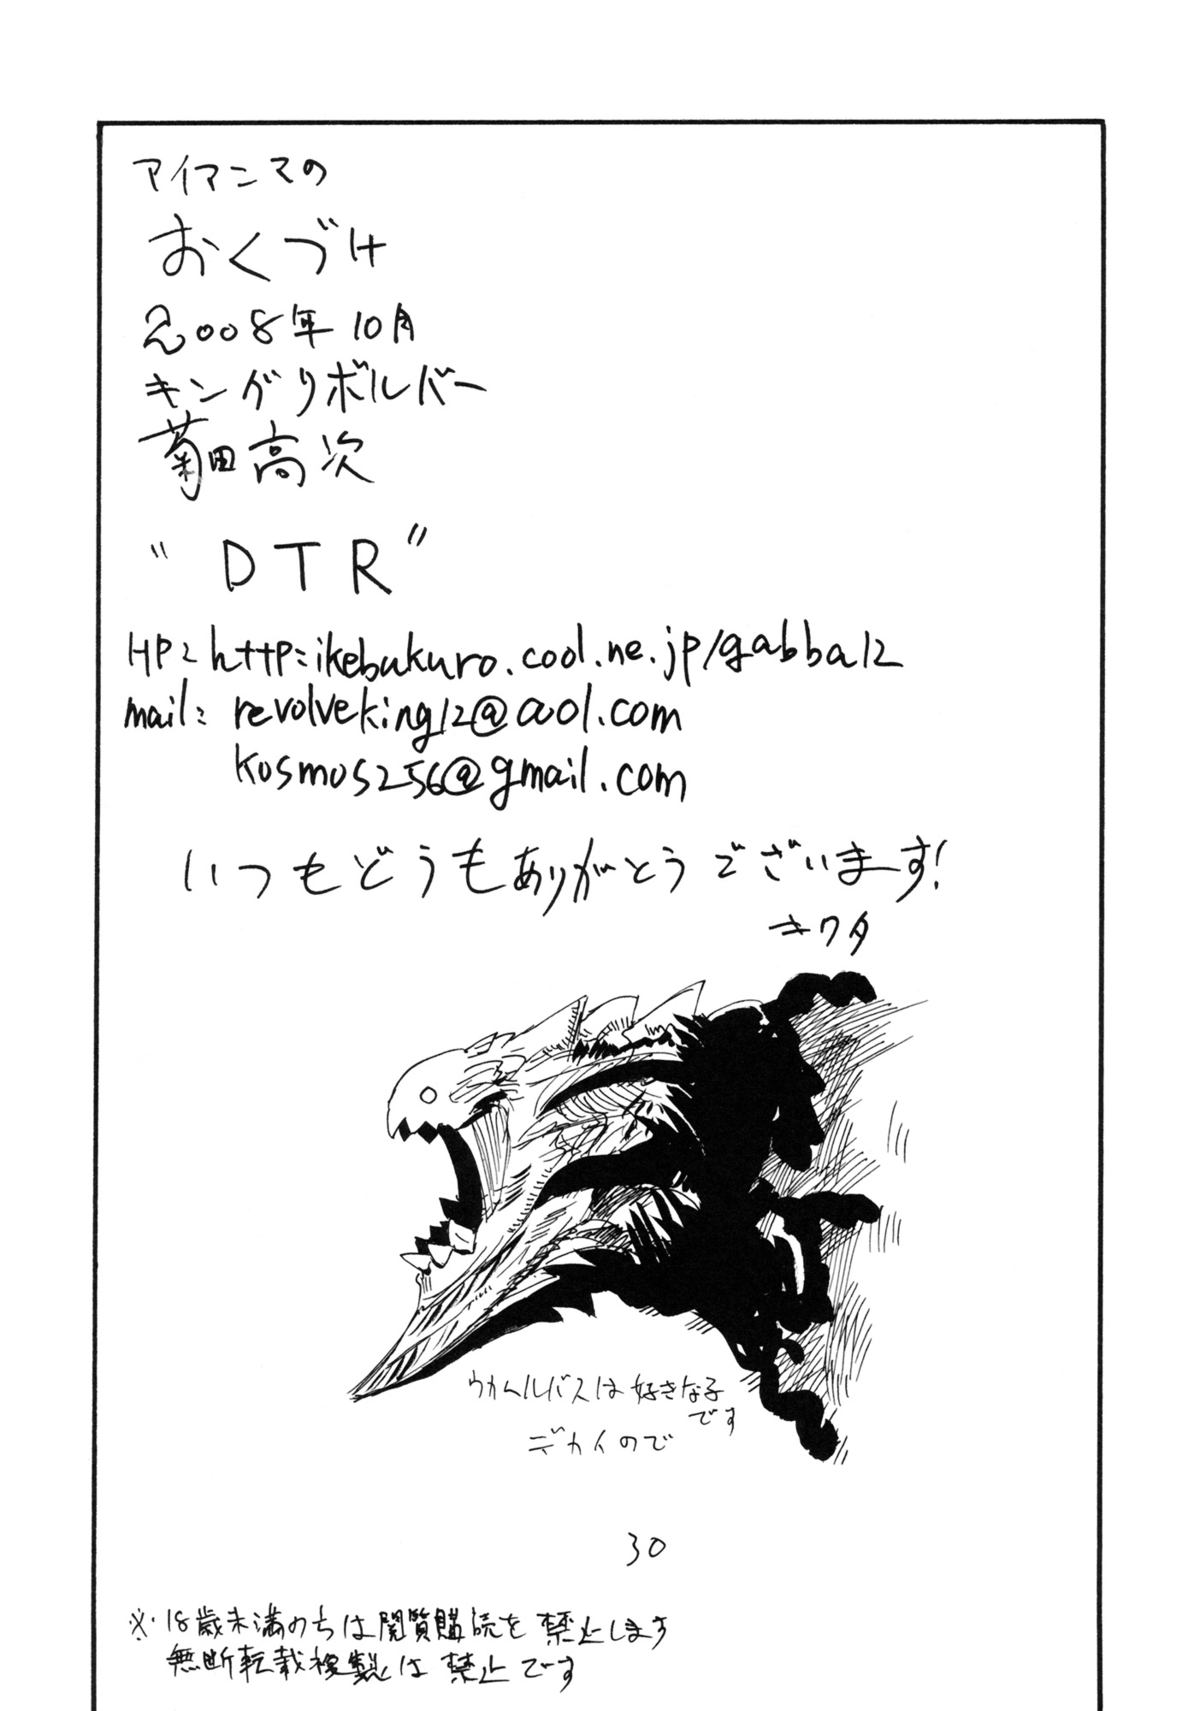 アイマンマの
おくづけ
2008年10月
キングリボルバー
菊田高次
"DTR"
HP: http:ikebukuro.cool.ne.jp/gabba12
mail: revolveking12@aol.com
kosmos256@gmail.com
いつもどうもありがとうございます!
キクタ
ウカムルバスは好きな子
です
デカイので
30
※18歳未満のちは閲覧購読を禁止します
無断転載複製は禁止です